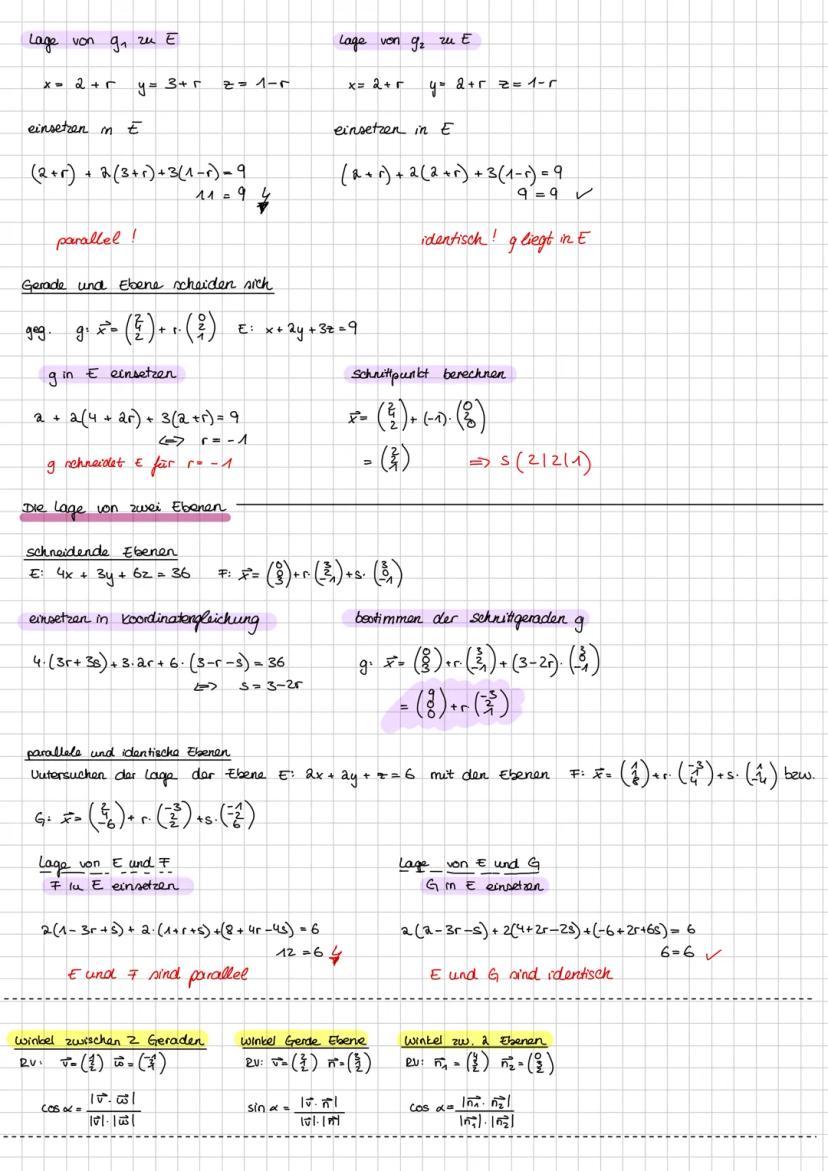 Lage von g₁ zu E
x = 2+r y = 3+r z = 1-r
einsetzen in E
(2+r) + 2(3+r)+3(1-r) = 9
11 = 9 ↯
parallel !
Lage von g₂ zu E
x = 2+r y = 2+r z = 1-r
einsetzen in E
(2+r) + 2(2+r) + 3(1-r) = 9
9 = 9 ✓
identisch! g liegt in E
Gerade und Ebene scheiden sich
geg. g: x⃗ = (2 4 2) + r· (0 2 1) E: x + 2y + 3z = 9
g in E einsetzen
2 + 2(4 + 2r) + 3(2+r) = 9
<=> r = -1
g schneidet E für r = -1
Schnittpunkt berechnen
x⃗ = (2 4 2) + (-1)· (0 2 0)
= (2 2 1) => S(2|2|1)
Die Lage von zwei Ebenen
schneidende Ebenen
E: 4x + 3y + 6z = 36 F: x⃗ = (0 0 3) + r· (3 2 -1) + s· (3 0 -1)
einsetzen in Koordinatengleichung
4·(3r+3s) + 3·2r + 6·(3-r-s) = 36
<=> s = 3-2r
bestimmen der Schnittgeraden g
g: x⃗ = (0 0 3) + r· (3 2 -1) + (3-2r)· (3 0 -1)
= (9 0 0) + r (-3 2 1)
parallele und identische Ebenen
Untersuchen der Lage der Ebene E: 2x + 2y + z = 6 mit den Ebenen F: x⃗ = (1 1 8) + r· (-3 1 4) + s· (1 1 -4) bzw.
G: x⃗ = (2 4 -6) + r· (-3 2 2) + s· (-1 -2 6)
Lage von E und F
F in E einsetzen
2(1-3r+s) + 2·(1+r+s) + (8+4r-4s) = 6
12 = 6 ↯
E und F sind parallel
Lage von E und G
G in E einsetzen
2(2-3r-s) + 2(4+2r-2s) + (-6+2r+6s) = 6
6 = 6 ✓
E und G sind identisch
Winkel zwischen 2 Geraden
RV: v⃗ = (1 2 2) w⃗ = (-1 4 1)
cos α = |v⃗ · w⃗| / |v⃗| · |w⃗|
Winkel Gerde Ebene
RV: v⃗ = (2 1 2) n⃗ = (3 2 2)
sin α = |v⃗ · n⃗| / |v⃗| · |n⃗|
Winkel zw. 2 Ebenen
RV: n⃗₁ = (4 3 2) n⃗₂ = (0 3 2)
cos α = |n⃗₁ · n⃗₂| / |n⃗₁| · |n⃗₂|